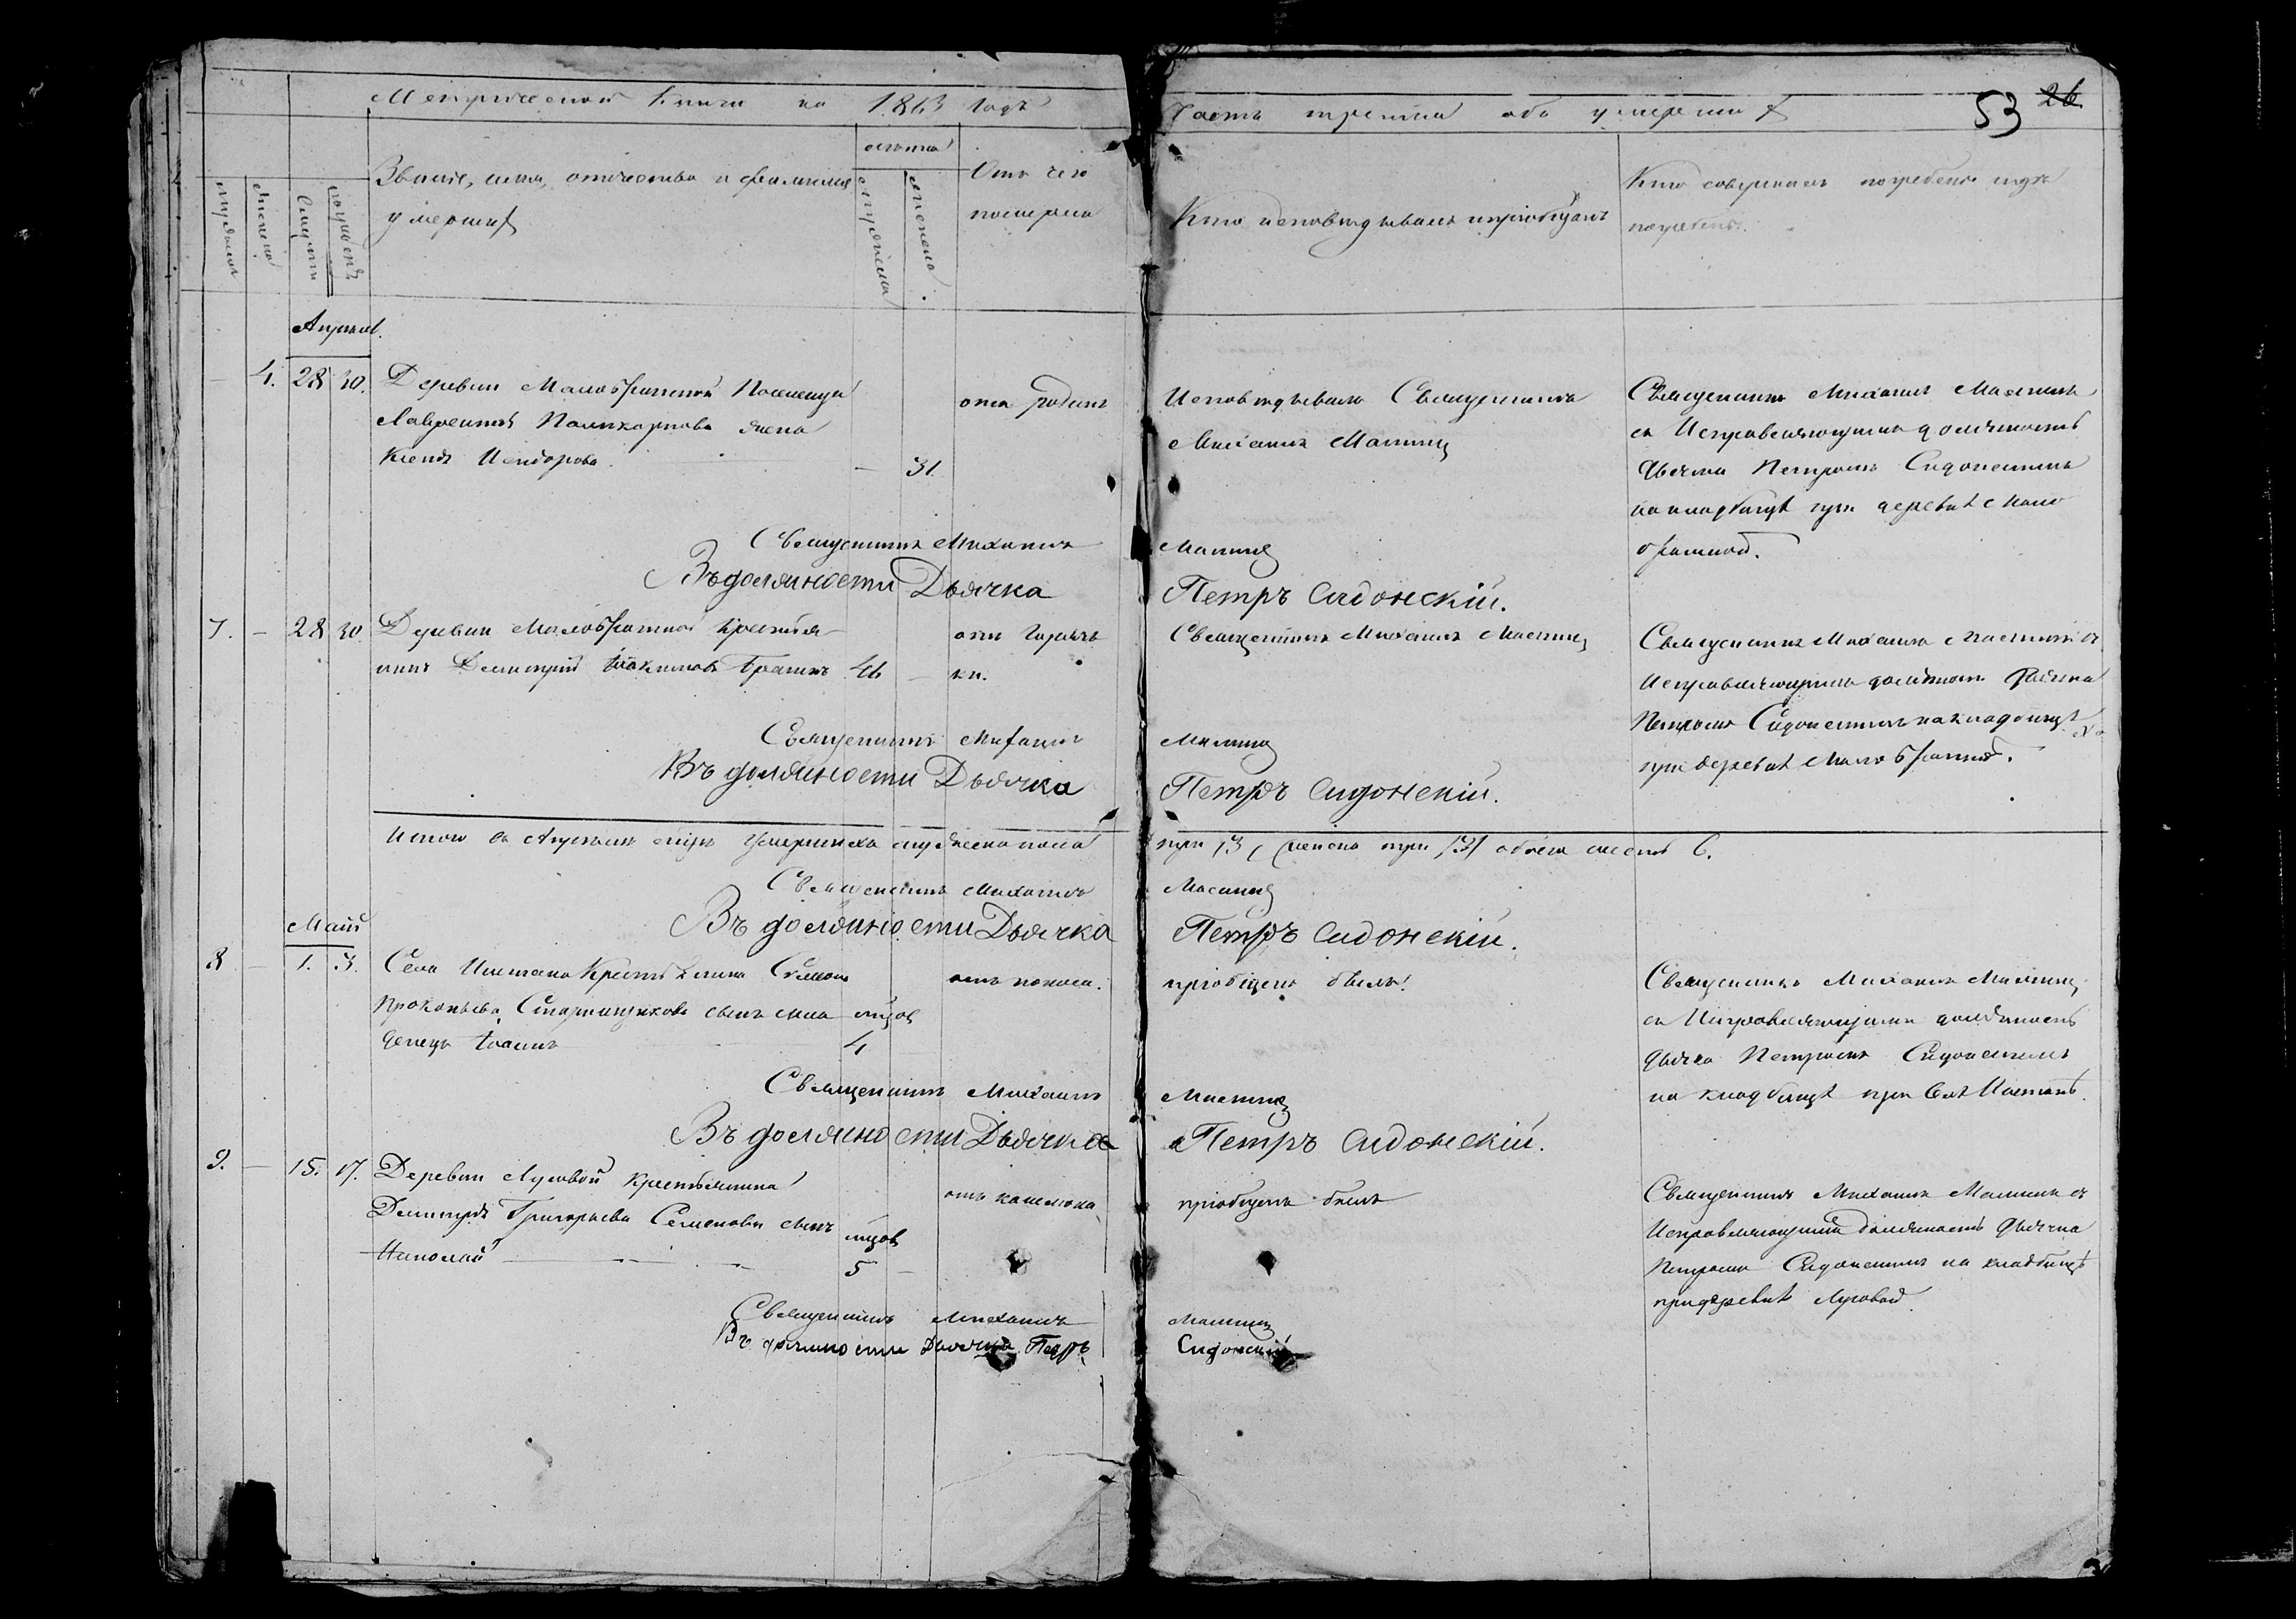 Метрической книги на 1863 годъ
Часть третія объ умершихъ
53 26
мужеска
женска
Смерти
погребенія
Званіе, имя, отчество и фамилія
умершихъ
лѣта
мужеска
женска
Отъ чего
померли
Кто исповѣдывалъ и пріобщалъ
Кто совершалъ погребеніе и гдѣ
погребены.
Апрѣль.
4. 28 30. Деревни Малобратской Поселенца
Лаврентія Поликарпова жена
31.
отъ родовъ
Исповѣдывалъ Священникъ
Михаилъ
Священникъ Михаилъ
съ Исправляющимъ должность
дьячка Петромъ Сидонскимъ
на кладбищѣ при деревнѣ Мало
братской.
Священникъ Михаилъ
Въ должности Дьячка Петръ Сидонскій.
7. – 28 30. Деревни Малобратской Крестья-
нинъ Димитрій Іоакимовъ Брагинъ 46 –
отъ горяч
ки.
Священникъ Михаилъ
Священникъ Михаилъ съ
Исправляющимъ должность дьячка
Петромъ Сидонскимъ на кладбищѣ
при деревнѣ Малобратской.
Священникъ Михаилъ
Въ должности Дьячка Петръ Сидонскій.
Итого въ Апрѣлѣ мцѣ умершихъ мужеска пола
три /3/, женска три /3/ обоего 6.
Священникъ Михаилъ
Въ должности Дьячка Петръ Сидонскій.
Май
8 – 1. 3. Села Крестьянина Симеона
Прокопьева сынъ мла
денецъ Іоаннъ
мцов
4
отъ поноса.
пріобщенъ былъ.
Священникъ Михаилъ
съ Исправляющимъ должность
дьячка Петромъ Сидонскимъ
на кладбищѣ при селѣ
Священникъ Михаилъ
Въ должности Дьячка Петръ Сидонскій.
9. – 15. 17. Деревни Луговой крестьянина
Димитрія Григорьева Семенова сынъ
Николай
мцов
5 –
отъ кашлюка
пріобщенъ былъ
Священникъ Михаилъ съ
Исправляющимъ должность дьячка
Петромъ Сидонскимъ на кладбищѣ
при деревнѣ Луговой.
Священникъ Михаилъ
Въ должности Дьячка Петръ Сидонскій